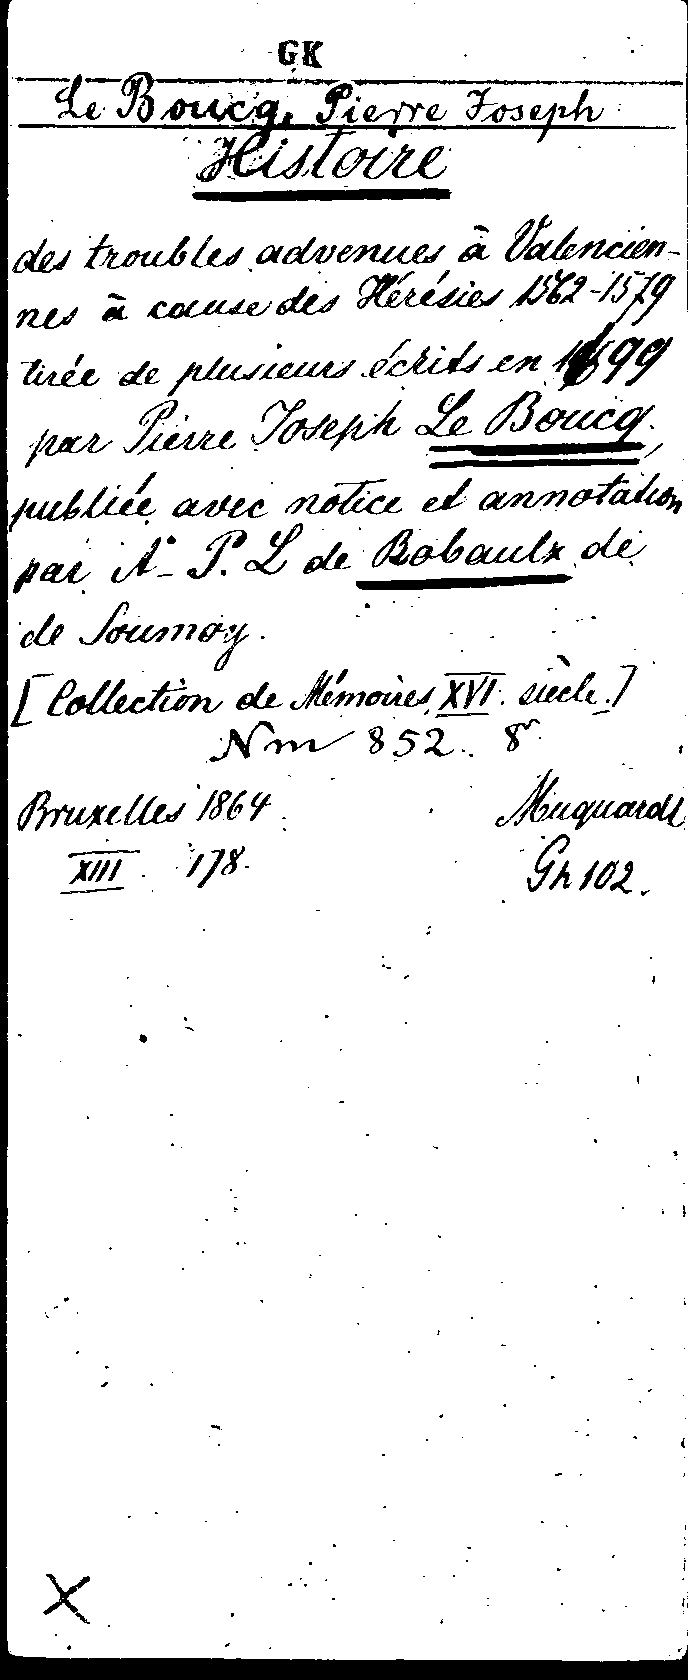 GK
Le Boucq, Pierre Joseph
Histoire
des troubles advenues à Valencien-
nes à cause des Hérésies 1562-1579
tirée de plusieurs écrits en 1699
par Pierre Joseph Le Boucq,
publiée avec notice et annotation
par A- P. L de Robaulx de
de Soumoy.
[Collection de Mémoires, XVI. siècle.]
Nm 852. 8°
Bruxelles 1864 Muquardt
XIII 178. Gh 102.
X